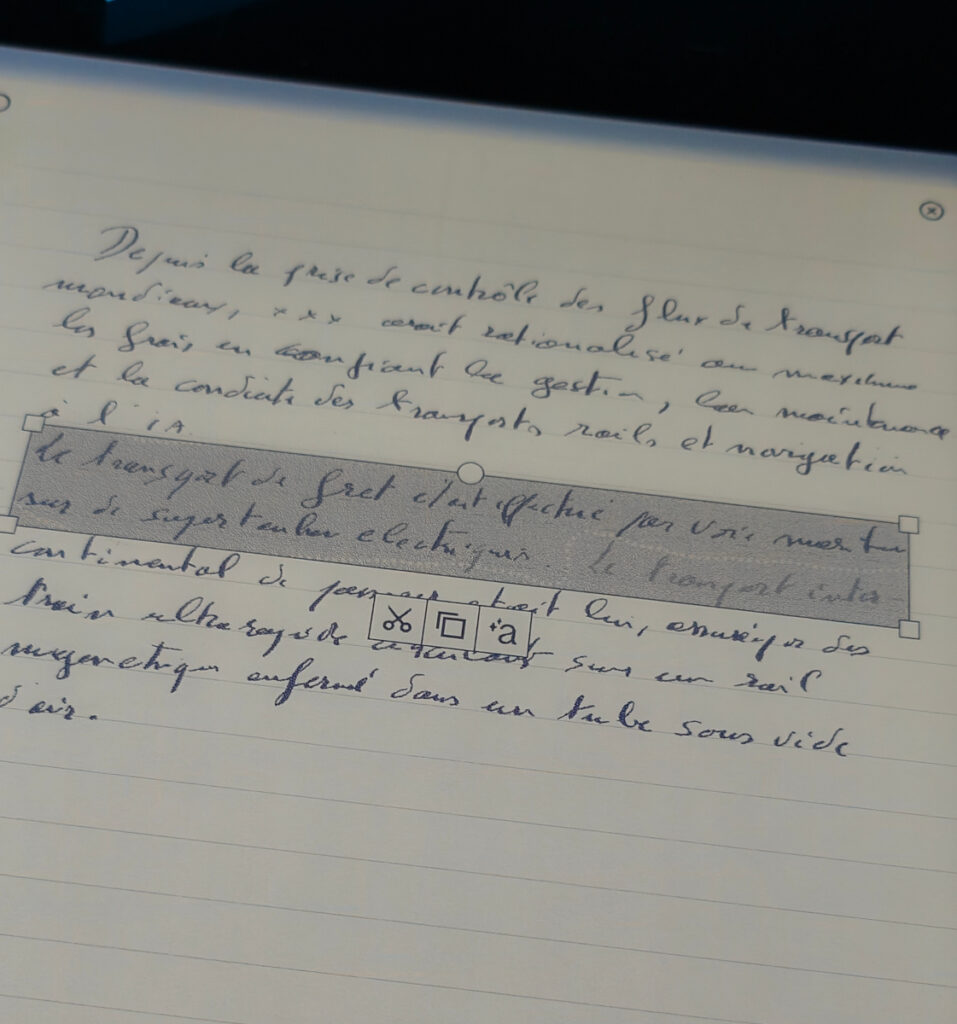 Depuis la prise de contrôle des flux de transport
mondiaux, xxx avait rationalisé au maximum
les frais en confiant la gestion, la maintenance
et la conduite des transports rails et navigation
à l'IA.
Le transport de fret était effectué par voie mariti
sur de supertanker electriques. Le transport inter-
continental de était lui, assuré par des
train ultra rapide sur un rail
magnetique enfermé dans un tube sous vide
d'air.
a